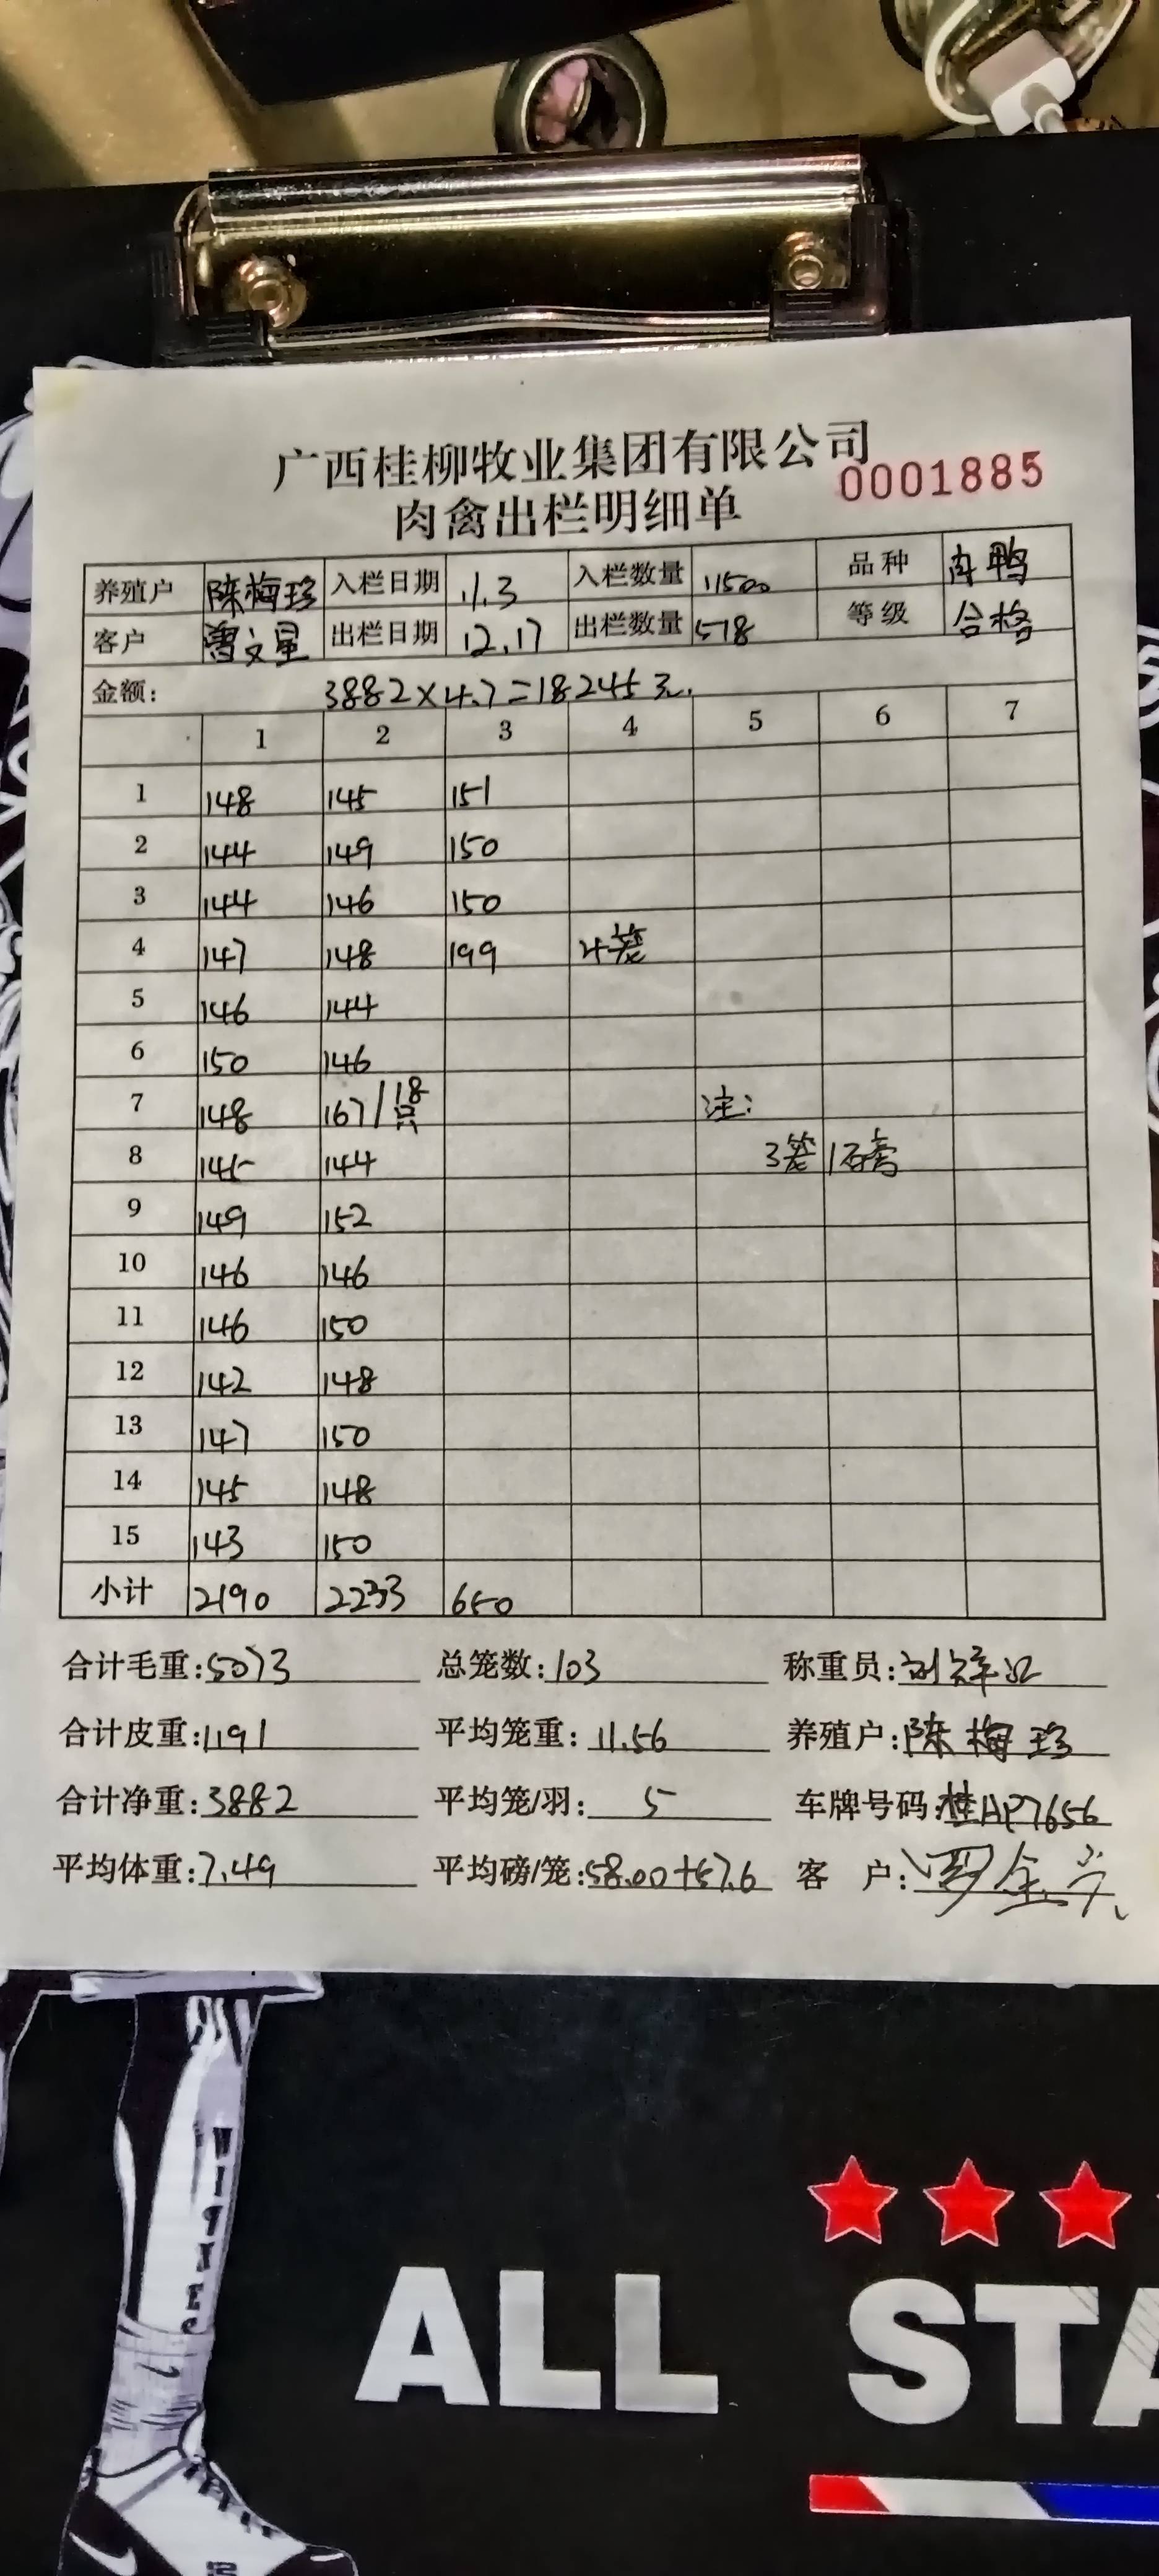 广西桂柳牧业集团有限公司
0001885
肉禽出栏明细单
养殖户 陈梅珍 入栏日期 11.3 入栏数量 11500 品种 肉鸭
客户 曹文星 出栏日期 12.17 出栏数量 518 等级 合格
金额: 3882×4.7=18245元.
1 2 3 4 5 6 7
1 148 145 151
2 144 149 150
3 144 146 150
4 147 148 199 4笼
5 146 144
6 150 146
7 148 167/18只 注:
8 145 144 3笼1石膏
9 149 152
10 146 146
11 146 150
12 142 148
13 147 150
14 145 148
15 143 150
小计 2190 2233 650
合计毛重:5073 总笼数:103 称重员:
合计皮重:1191 平均笼重:11.56 养殖户:陈梅珍
合计净重:3882 平均笼/羽:5 车牌号码:桂AP7656
平均体重:7.49 平均磅/笼:58.00+57.6 客 户:
ALL STA